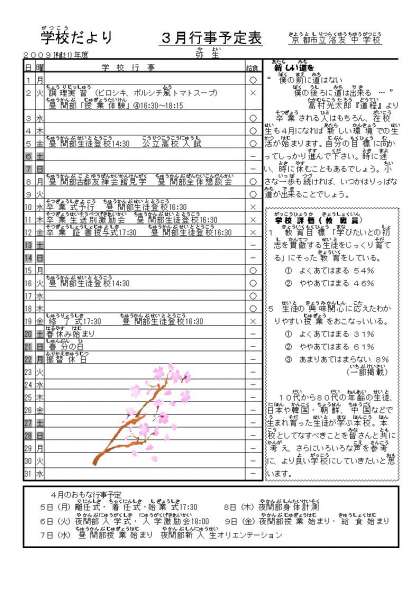 学校だより
３月行事予定表
京都市立洛友中学校
２００９(平成２１)年度
弥生
日 曜 学校行事 給食
1 月 ○
2 火 調理実習（ピロシキ、ボルシチ風トマトスープ） ×
昼間部「授業体験」④16:30～18:15
3 水 ○
4 木 昼間部生徒登校14:30 公立高校入試 ○
5 金 ○
6 土 －
7 日 －
8 月 昼間部全体懇談会 ○
9 火 ○
10 水 卒業式予行 昼間部生徒登校16:30 ×
11 木 昼間部生徒登校16:30 ×
12 金 卒業証書授与式17:30 昼間部生徒登校16:30 ×
13 土 －
14 日 －
15 月 ○
16 火 昼間部生徒登校14:30 ○
17 水 ○
18 木 ○
19 金 修了式17:30 昼間部生徒登校16:30 ×
20 土 春休み始まり －
21 日 春分の日 －
22 月 振替休日 －
23 火 －
24 水 －
25 木 －
26 金 －
27 土 －
28 日 －
29 月 －
30 火 －
31 水 －
新しい道を
“ 僕の前に道はない
僕の後ろに道は出来る …”
高村光太郎『道程』より
卒業される人はもちろん、在校
生も４月になれば新しい環境での生
活が始まります。自分の目標に向か
ってしっかり進んで下さい。時に迷
い、時に休むこともあるでしょう。小
さな一歩も続ければ、いつかはりっぱな
道が出来ることでしょう。
学校評価（教職員）
１ 教育目標「学びたいとの初
志を貫徹する生徒をじっくり育て
る」にそった教育をしている。
① よくあてはまる ５４％
② ややあてはまる ４６％
５ 生徒の興味関心に応えたわか
りやすい授業をおこなっている。
① よくあてはまる ３１％
② ややあてはまる ６１％
③ あまりあてはまらない ８％
（一部掲載）
１０代から８０代の年齢の生徒、
日本や韓国・朝鮮、中国などで
生まれ育った生徒が学ぶ本校。本
校としてなすべきことを皆さんと共に
考え、さらにいろいろな声を参考
に、より良い学校にしていきたいと思
います。
４月のおもな行事予定
５日（月）離任式・着任式・始業式17:30 ８日（木）夜間部身体計測
６日（火）夜間部入学式・入学激励会18:00 ９日（金）夜間部授業始まり・給食始まり
７日（水）昼間部授業始まり 夜間部新入生オリエンテーション